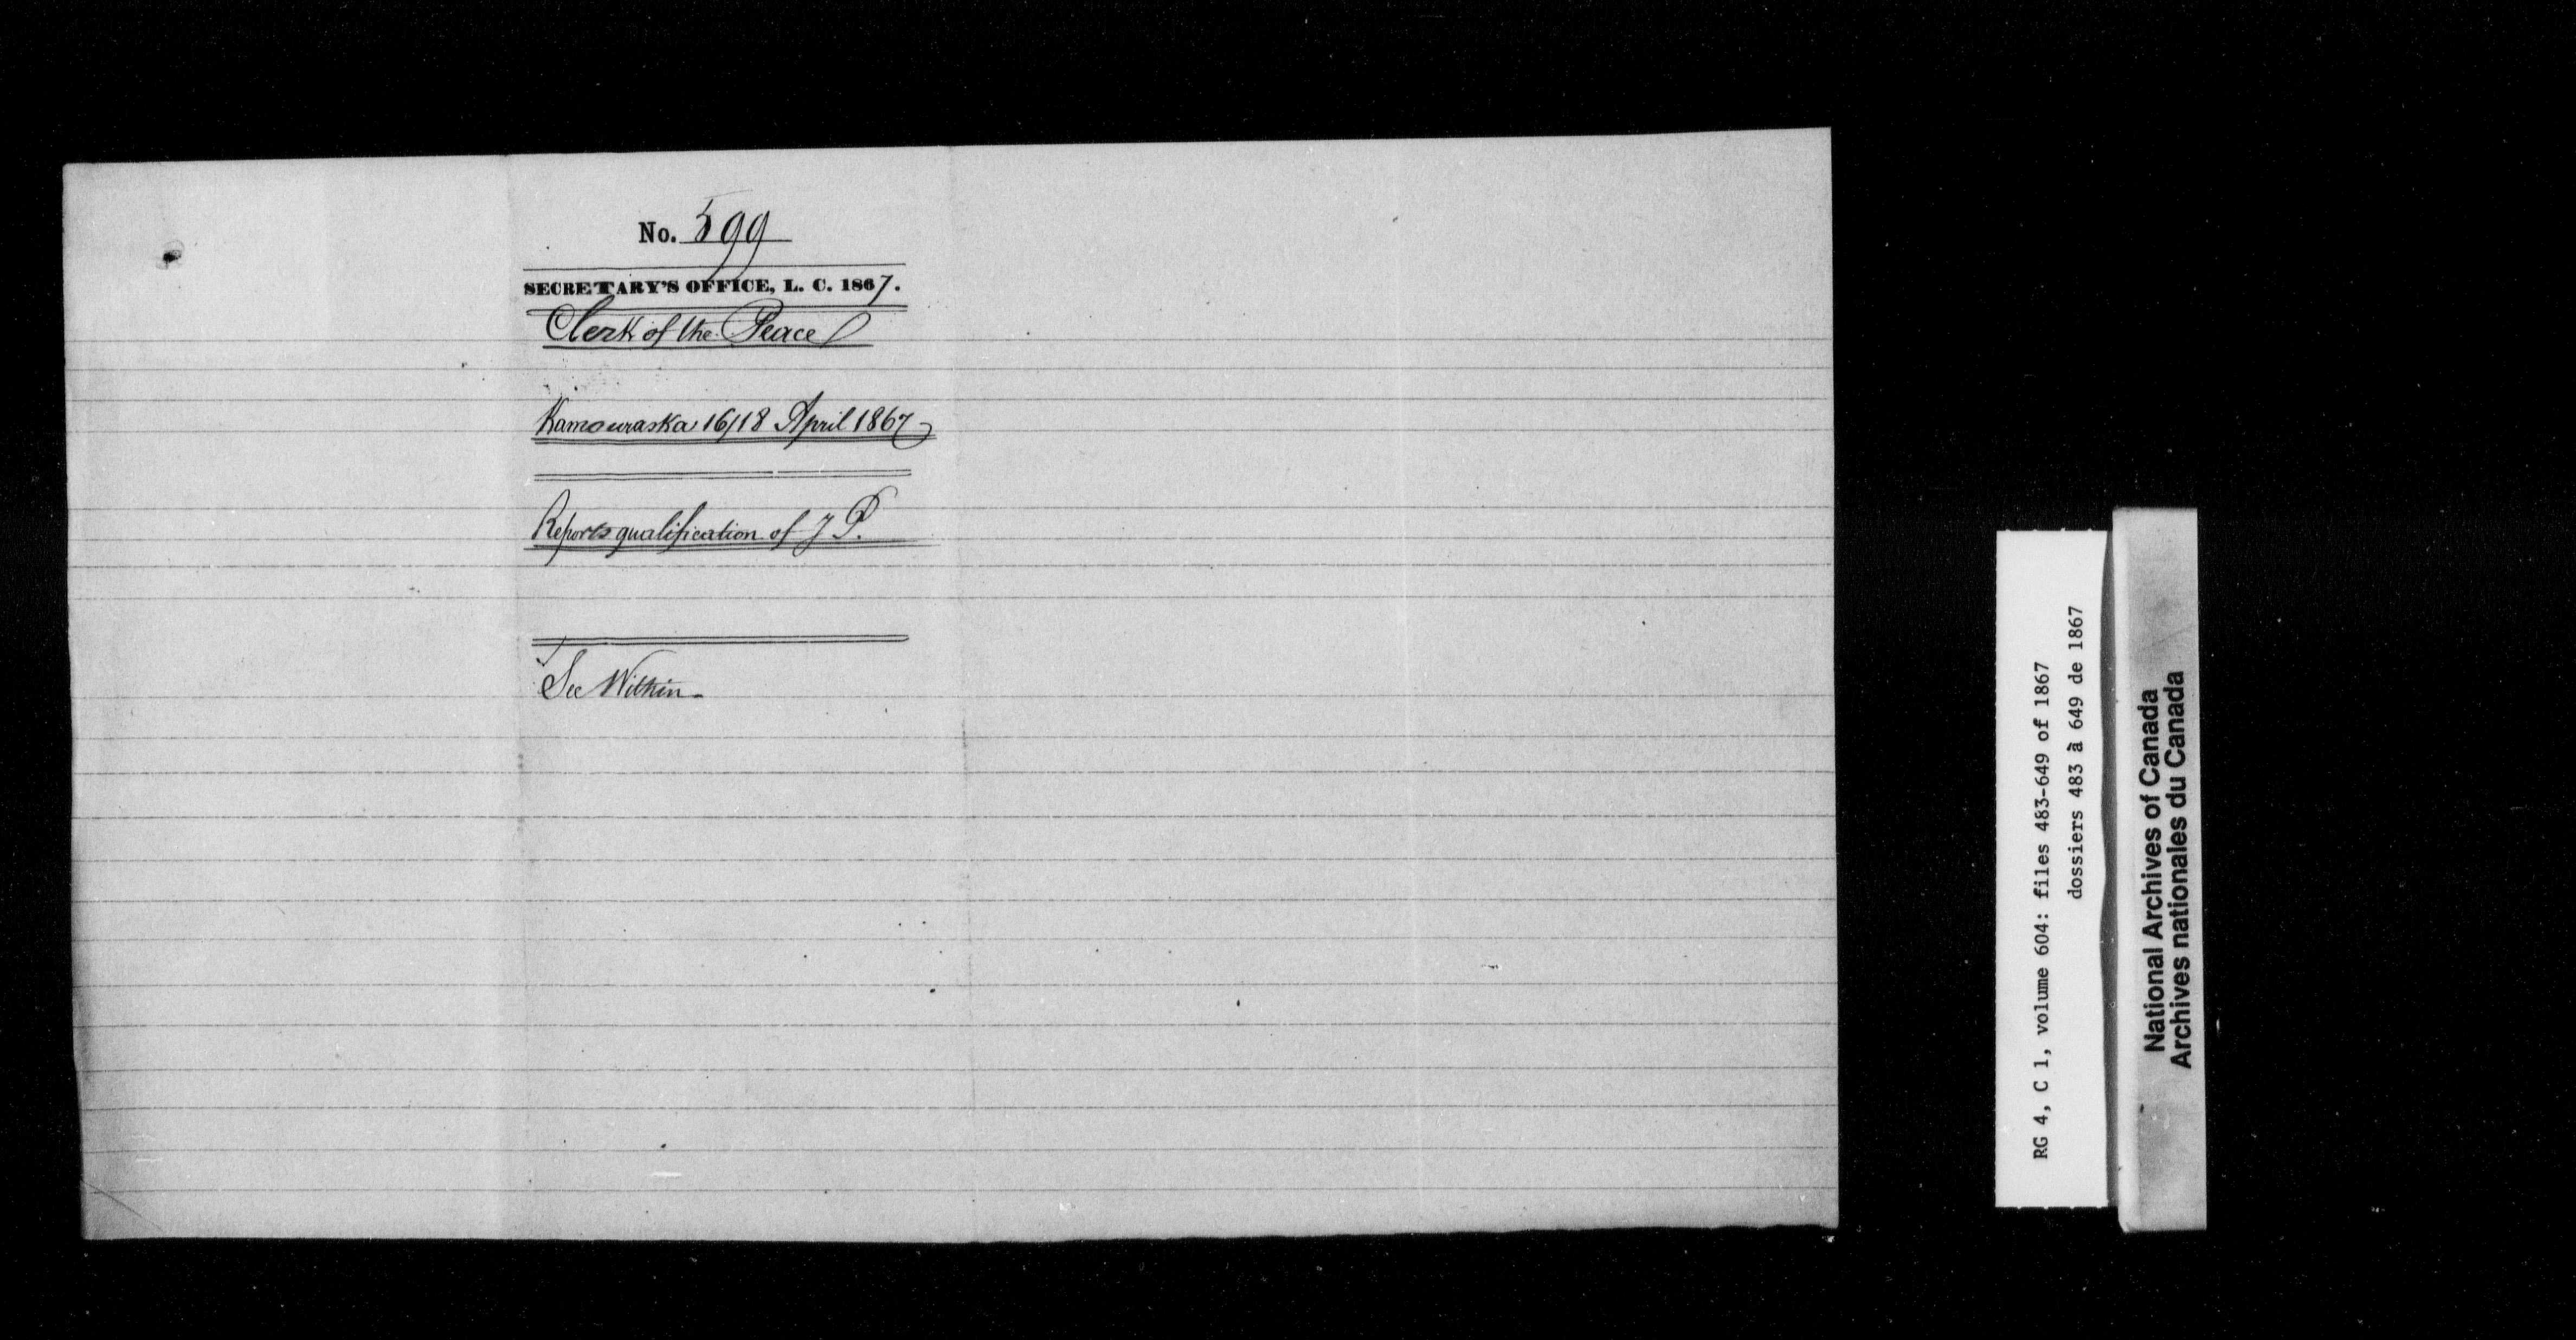 No. 599
SECRETARY'S OFFICE, L. C. 1867.
Clerk of the Peace
Kamouraska 16/18 April 1867
Reports qualification of J P.
See Within
RG 4, C 1, volume 604: files 483-649 of 1867
dossiers 483 à 649 de 1867
National Archives of Canada
Archives nationales du Canada